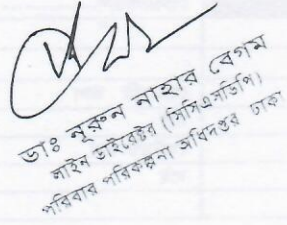 ডাঃ নূরুন নাহার বেগম
লাইন ডাইরেক্টর (সিসিএসডিপি)
পরিবার পরিকল্পনা অধিদপ্তর ঢাকা